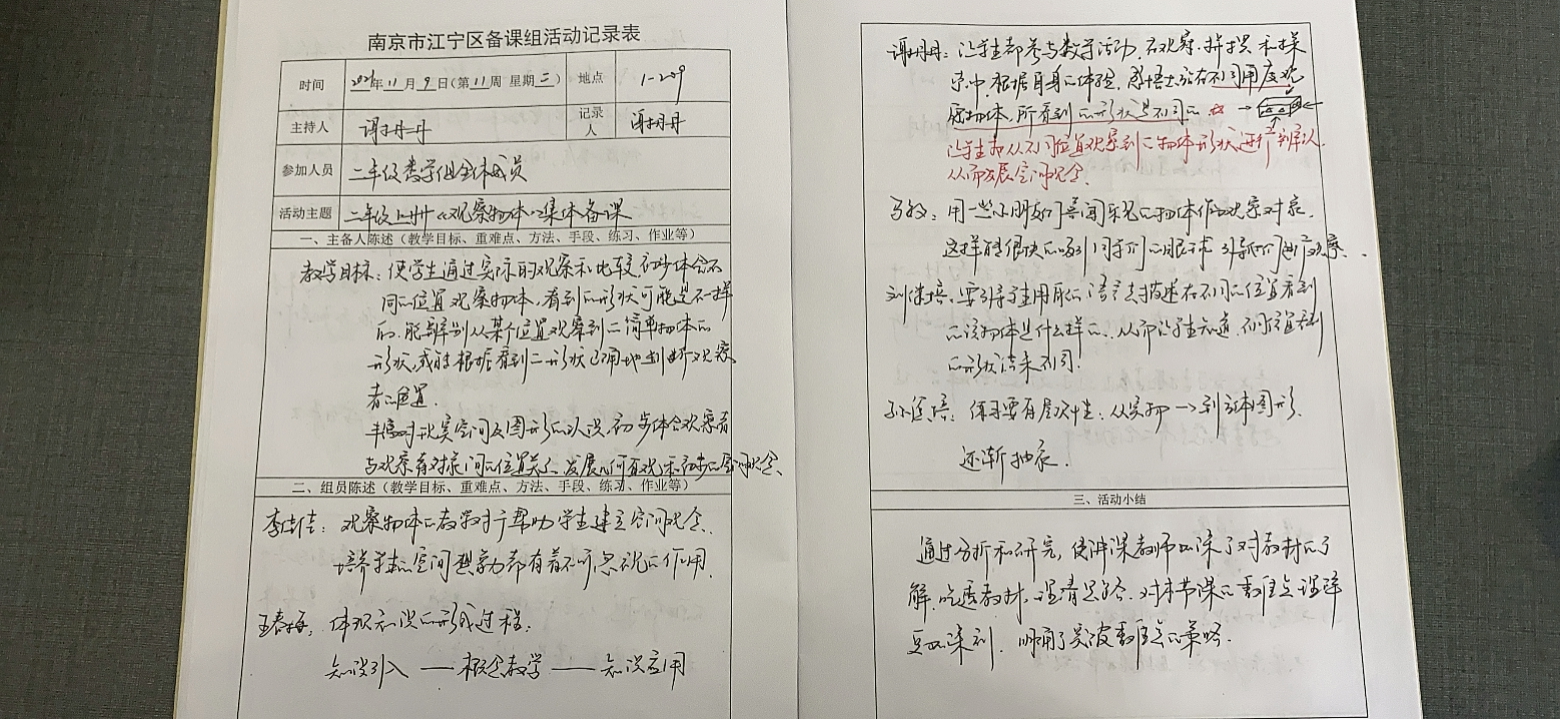 南京市江宁区备课组活动记录表
时间 2021年11月9日(第11周 星期二) 地点 1-209
主持人 谢丹丹 记录人 谢丹丹
参加人员 二年级数学组全体成员
活动主题 二年级上册《观察物体》集体备课
一、主备人陈述（教学目标、重难点、方法、手段、练习、作业等）
教学目标：使学生通过实际的观察和比较初步体会不
同的位置观察物体，看到的形状可能是不一样
的，能辨别从某个位置观察到的简单物体的
形状，或能根据看到的形状正确地判断观察
者的位置.
丰富对现实空间及图形的认识，初步体会观察者
与观察者对象间的位置关系、发展几何直观和初步的空间观念、
二、组员陈述（教学目标、重难点、方法、手段、练习、作业等）
观察物体的教学对于帮助学生建立空间观念、
培养学生的空间想象力都有着不可忽视的作用.
王春梅：体现知识的形成过程：
知识引入 —— 概念教学 —— 知识应用
谢丹丹：让学生都参与教学活动，在观察、拼摆和操
作中，根据自身的体验，感悟出站在不同角度观
察物体，所看到的形状是不同的
让学生在从不同位置观察到的物体形状进行辨认，
从而发展空间观念.
用一些小朋友们喜闻乐见的物体作为观察对象，
这样能很快的吸引同学们的眼球，引导他们进行观察.
要引导学生用自己的语言去描述在不同的位置看到
的该物体是什么样的，从而让学生知道，不同位置看到
的形状结果不同.
练习要有层次性：从实物 → 到立体图形.
逐渐抽象.
三、活动小结
通过分析和研究，使听课教师加深了对教材的了
解，吃透教材，理清思路，对本节课的重难点理解
更加深刻，明确了突破重难点的策略.